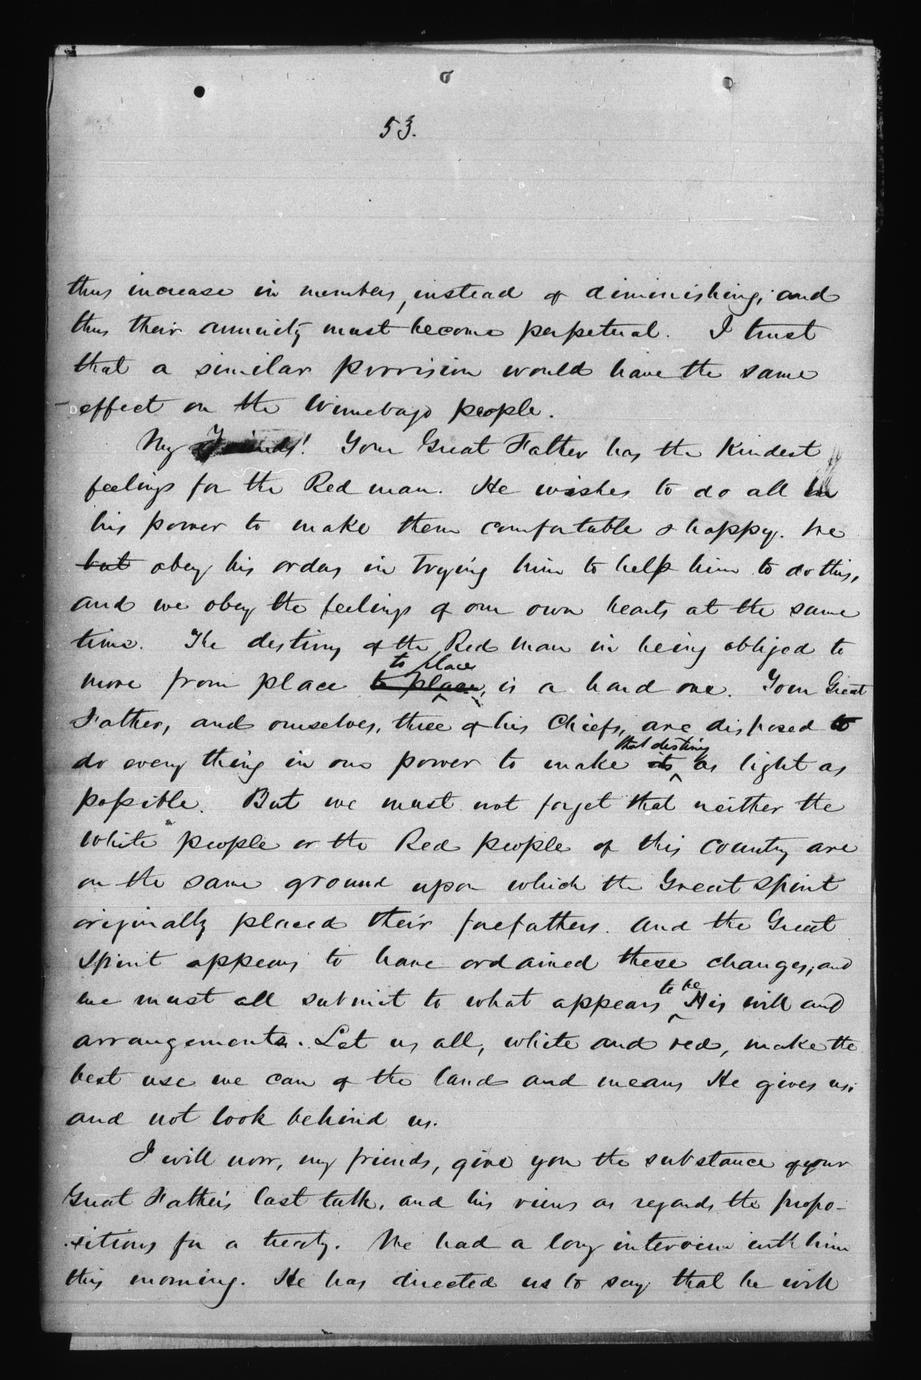 53.
thus increase in numbers, instead of diminishing; and
thus their annuity must become perpetual. I trust
that a similar provision would have the same
effect on the Winnebago people.
My Friends! Your Great Father has the kindest
feelings for the Red man. He wishes to do all in
his power to make them comfortable & happy. We
but obey his orders in trying him to help him to do this,
and we obey the feelings of our own hearts at the same
time. The destiny of the Red man in being obliged to
to place
move from place to place, is a hard one. Your Great
Father, and ourselves, three of his Chiefs, are disposed to
that destiny
do every thing in our power to make its as light as
possible. But we must not forget that neither the
White people or the Red people of this country are
on the same ground upon which the Great Spirit
originally placed their forefathers. And the Great
Spirit appears to have ordained these changes, and
to be
we must all submit to what appears His will and
arrangements. Let us all, white and red, make the
best use we can of the land and means He gives us;
and not look behind us.
I will now, my friends, give you the substance of your
Great Father's last talk, and his views as regards the propo-
sitions for a treaty. We had a long interview with him
this morning. He has directed us to say that he will